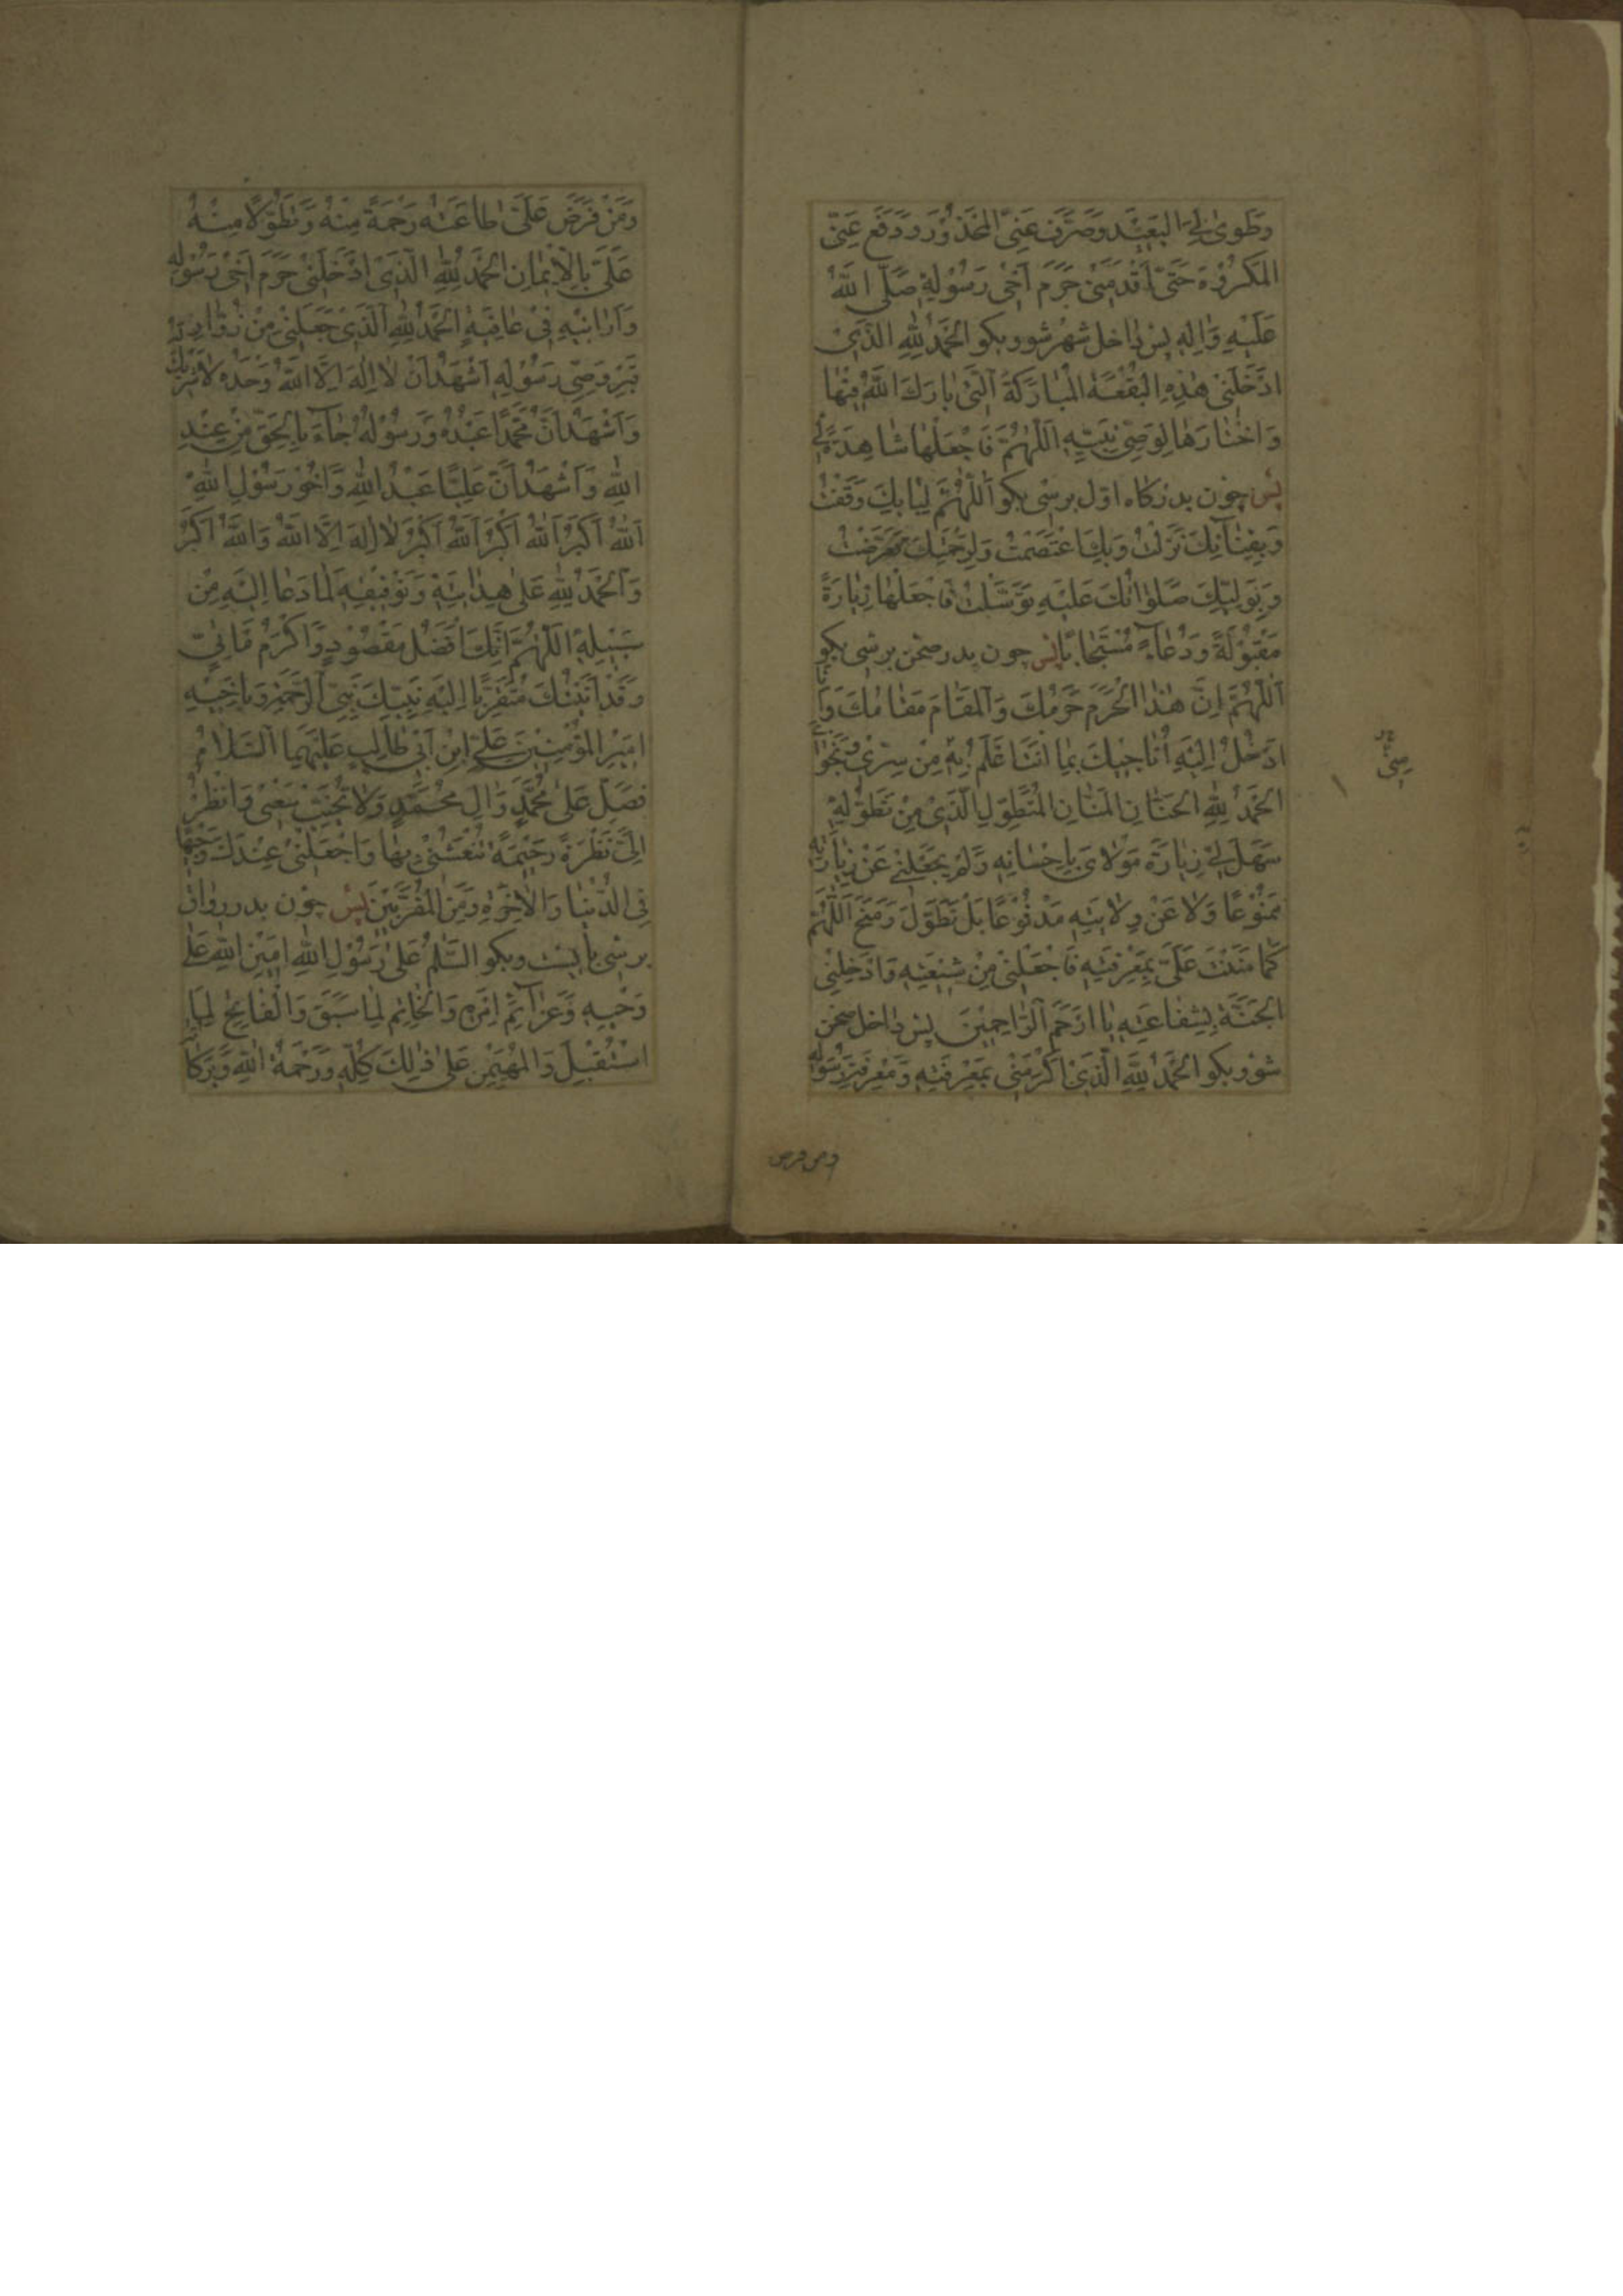 وَطَوىٰ لِىَ الْبَعيْدَ وَصَرَفَ عَنِّى الْمَحْذُوْرَ وَدَفَعَ عَنِّىَ
الْمَكْرُوْهَ حَتّىٰ اَقْدَمَنىْ حَرَمَ اَخىْ رَسُوْلِهِ صَلَّى اللّٰهُ
عَلَيْهِ وَاٰلِهِ پس داخل شهر شو و بكو الْحَمْدُ لِلّٰهِ الَّذىْ
اَدْخَلَنىْ هٰذِهِ الْبُقْعَةَ الْمُبارَكَةَ الَّتىْ بارَكَ اللّٰهُ فيْها
وَاخْتارَها لِوَصِىِّ نَبِيِّهِ اَللّٰهُمَّ فَاجْعَلْها شاهِدَةً لىْ
پس چون بدركاه اول برسى بكو اَللّٰهُمَّ لِبابِكَ وَقَفْتُ
وَبِفِنآئِكَ نَزَلْتُ وَبِكَ اعْتَصَمْتُ وَلِرَحْمَتِكَ تَعَرَّضْتُ
وَبِوَلِيِّكَ صَلَواتُكَ عَلَيْهِ تَوَسَّلْتُ فَاجْعَلْها زِيارَةً
مَقْبُوْلَةً وَدُعآءً مُسْتَجابًا پس چون بدر صحن برسى بكو
اَللّٰهُمَّ اِنَّ هٰذَا الْحَرَمَ حَرَمُكَ وَالْمَقامَ مَقامُكَ وَاَنَا
اَدْخُلُ اِلَيْهِ اُناجيْكَ بِما اَنْتَ اَعْلَمُ بِهِ مِنْ سِرّىْ وَنَجْواىَ
الْحَمْدُ لِلّٰهِ الْحَنّانِ الْمَنّانِ الْمُتَطَوِّلِ الَّذىْ مِنْ تَطَوُّلِهِ
سَهَّلَ لىْ زِيارَةَ مَوْلاىَ بِاِحْسانِهِ وَلَمْ يَجْعَلْنىْ عَنْ زِيارَتِهِ
مَمْنُوْعًا وَلا عَنْ وِلايَتِهِ مَدْفُوْعًا بَلْ تَطَوَّلَ وَمَنَحَ اَللّٰهُمَّ
كَما مَنَنْتَ عَلَىَّ بِمَعْرِفَتِهِ فَاجْعَلْنىْ مِنْ شيْعَتِهِ وَاَدْخِلْنىْ
الْجَنَّةَ بِشَفاعَتِهِ يا اَرْحَمَ الرّاحِميْنَ پس داخل صحن
شو و بكو الْحَمْدُ لِلّٰهِ الَّذىْ اَكْرَمَنىْ بِمَعْرِفَتِهِ وَمَعْرِفَةِ رَسُوْلِهِ
ومن فرض
وَمَنْ فَرَضَ عَلَىَّ طاعَتَهُ رَحْمَةً مِنْهُ وَتَطَوُّلًا مِنْهُ
عَلَىَّ بِالْايْمانِ الْحَمْدُ لِلّٰهِ الَّذىْ اَدْخَلَنىْ حَرَمَ اَخىْ رَسُوْلِهِ
وَاَرانيْهِ فىْ عافِيَةٍ الْحَمْدُ لِلّٰهِ الَّذىْ جَعَلَنىْ مِنْ زُوّارِ
قَبْرِ وَصِىِّ رَسُوْلِهِ اَشْهَدُ اَنْ لا اِلٰهَ اِلَّا اللّٰهُ وَحْدَهُ لا شَريْكَ لَهُ
وَاَشْهَدُ اَنَّ مُحَمَّدًا عَبْدُهُ وَرَسُوْلُهُ جآءَ بِالْحَقِّ مِنْ عِنْدِ
اللّٰهِ وَاَشْهَدُ اَنَّ عَلِيًّا عَبْدُ اللّٰهِ وَاَخُوْ رَسُوْلِ اللّٰهِ
اَللّٰهُ اَكْبَرُ اَللّٰهُ اَكْبَرُ اَللّٰهُ اَكْبَرُ لا اِلٰهَ اِلَّا اللّٰهُ وَاللّٰهُ اَكْبَرُ
وَالْحَمْدُ لِلّٰهِ عَلىٰ هِدايَتِهِ وَتَوْفيْقِهِ لِما دَعا اِلَيْهِ مِنْ
سَبيْلِهِ اَللّٰهُمَّ اِنَّكَ اَفْضَلُ مَقْصُوْدٍ وَاَكْرَمُ مَاْتِىٍّ
وَقَدْ اَتَيْتُكَ مُتَقَرِّبًا اِلَيْهِ نَبِيِّكَ نَبِىِّ الرَّحْمَةِ وَبِاَخيْهِ
اَميْرِ الْمُؤْمِنيْنَ عَلِىِّ ابْنِ اَبىْ طالِبٍ عَلَيْهِمَا السَّلامُ
فَصَلِّ عَلىٰ مُحَمَّدٍ وَاٰلِ مُحَمَّدٍ وَلا تُخَيِّبْ سَعْيىْ وَانْظُرْ
اِلَىَّ نَظْرَةً رَحيْمَةً تُنْعِشُنىْ بِها وَاجْعَلْنىْ عِنْدَكَ وَجيْهًا
فِى الدُّنْيا وَالْاٰخِرَةِ وَمِنَ الْمُقَرَّبيْنَ پس چون بدر رواق
برسى بايست و بكو السَّلٰمُ عَلىٰ رَسُوْلِ اللّٰهِ اَميْنِ اللّٰهِ عَلىٰ
وَحْيِهِ وَعَزآئِمِ اَمْرِهِ وَالْخاتِمِ لِما سَبَقَ وَالْفاتِحِ لِمَا
اسْتُقْبِلَ وَالْمُهَيْمِنِ عَلىٰ ذٰلِكَ كُلِّهِ وَرَحْمَةُ اللّٰهِ وَبَرَكاتُهُ